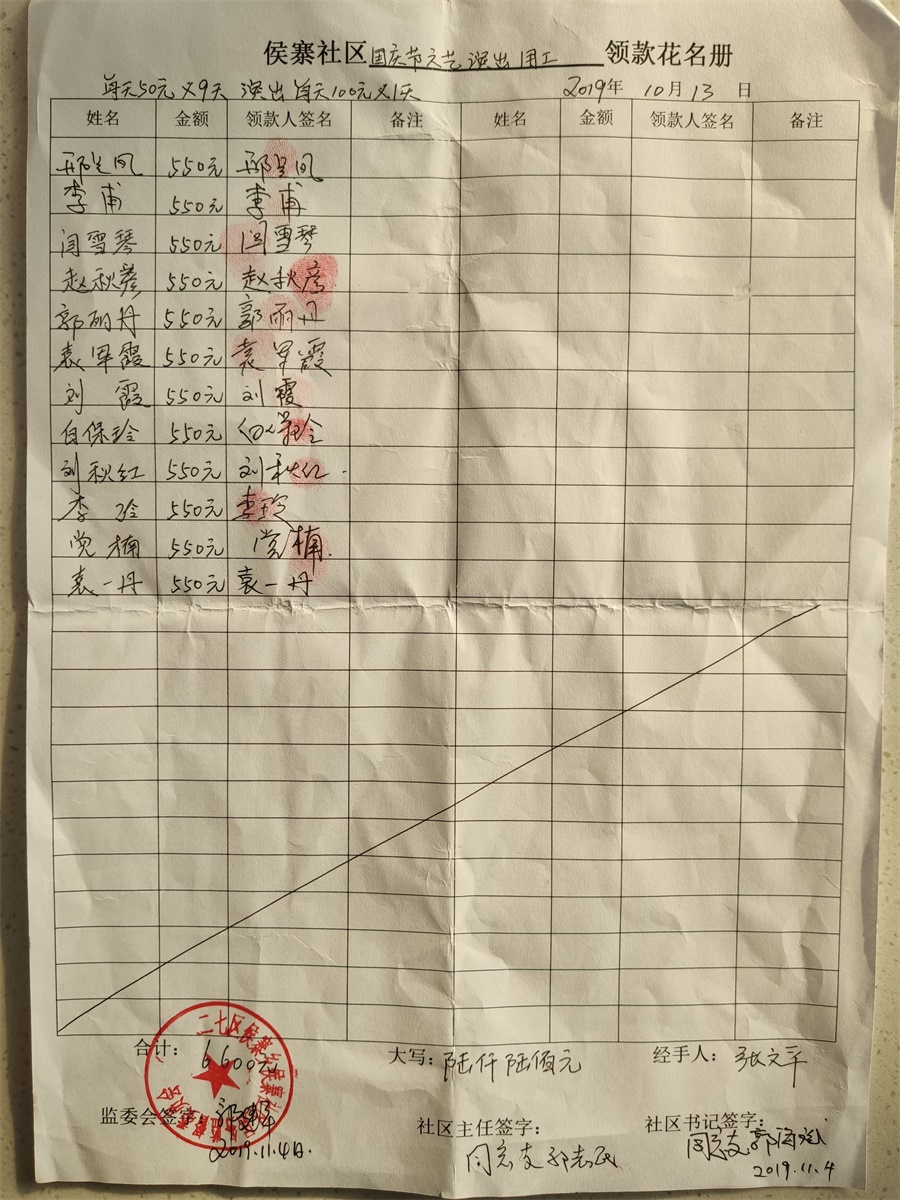 侯寨社区国庆节文艺演出用工 领款花名册
每天50元×9天 演出每天100元×1天 2019年10月13日
姓名 金额 领款人签名 备注 姓名 金额 领款人签名 备注
550元
李甫 550元 李甫
闫雪琴 550元 闫雪琴
赵秋彦 550元 赵秋彦
郭丽丹 550元 郭丽丹
袁军霞 550元 袁军霞
刘霞 550元 刘霞
白保玲 550元
刘秋红 550元 刘秋红.
李玲 550元 李玲
党楠 550元 党楠.
袁一丹 550元 袁一丹
合计: 6600元 大写: 陆仟陆佰元 经手人: 张文平
监委会签字: 社区主任签字: 社区书记签字:
2019.11.4日. 2019.11.4
二七区侯寨